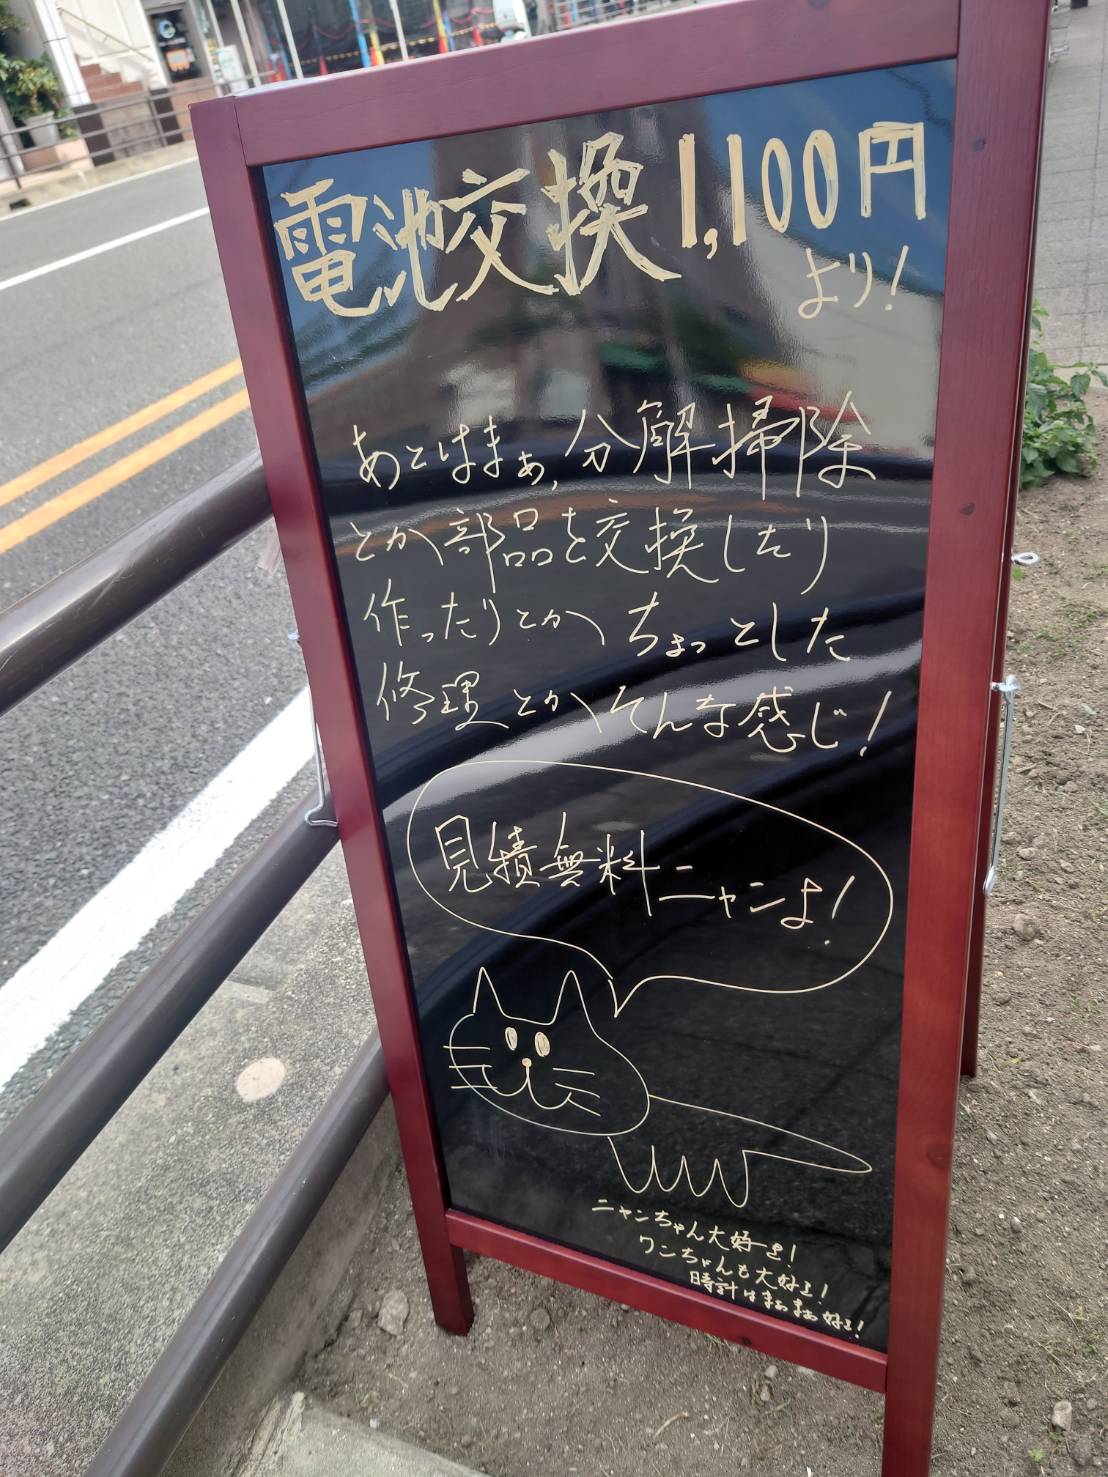 電池交換1,100円
より!
あとはまぁ,分解掃除
とか部品を交換したり
作ったりとかちょっとした
修理とかそんな感じ!
見積無料ニャンよ!
ニャンちゃん大好き!
ワンちゃんも大好き!
時計はまぁまぁ好き!